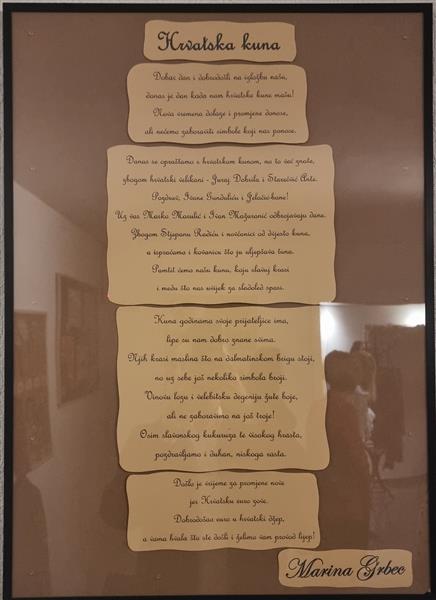 Hrvatska kuna
Dobar dan i dobrodošli na izložbu našu,
danas je dan kada nam hrvatske kune mašu!
Nova vremena dolaze i promjene donose,
ali nećemo zaboraviti simbole koji nas ponose.
Danas se opraštamo s hrvatskom kunom, na to već znate,
zbogom hrvatski velikani - Juraj Dobrila i Starčević Ante.
Pozdrav, Ivane Gunduliću i Jelačić-bane!
Uz vas Marko Marulić i Ivan Mažuranić odbrojavaju dane.
Zbogom Stjepanu Radiću i novčanici od dvjesto kuna,
a ispraćamo i kovanice što ju uljepšava tuna.
Pamtit ćemo našu kunu, koju slavuj krasi
i medu što nas uvijek za sladoled spasi.
Kuna godinama svoje prijateljice ima,
lipe su nam dobro znane svima.
Njih krasi maslina što na dalmatinskom brigu stoji,
no uz sebe još nekoliko simbola broji.
Vinovu lozu i velebitsku degeniju žute boje,
ali ne zaboravimo na još troje!
Osim slavonskog kukuruza te visokog hrasta,
pozdravljamo i duhan, niskoga rasta.
Došlo je vrijeme za promjene nove
jer Hrvatsku euro zove.
Dobrodošao euro u hrvatski džep,
a vama hvala što ste došli i želimo vam provod lijep!
Marina Grbec